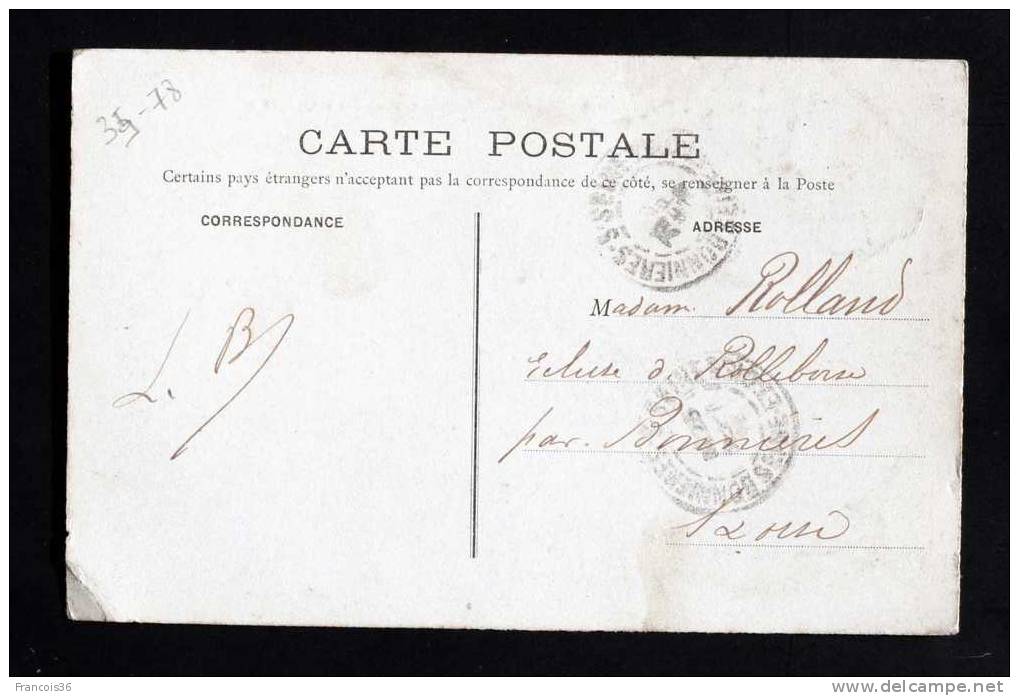 35-78
CARTE POSTALE
Certains pays étrangers n'acceptent pas la correspondance de ce côté, se renseigner à la Poste
CORRESPONDANCE
ADRESSE
Madam. Rolland
Ecluse d Rolleboise
par Bonnières
S&Oise
L. B
BONNIERES-S-SEINE
BONNIERES
Francois36
www.delcampe.net